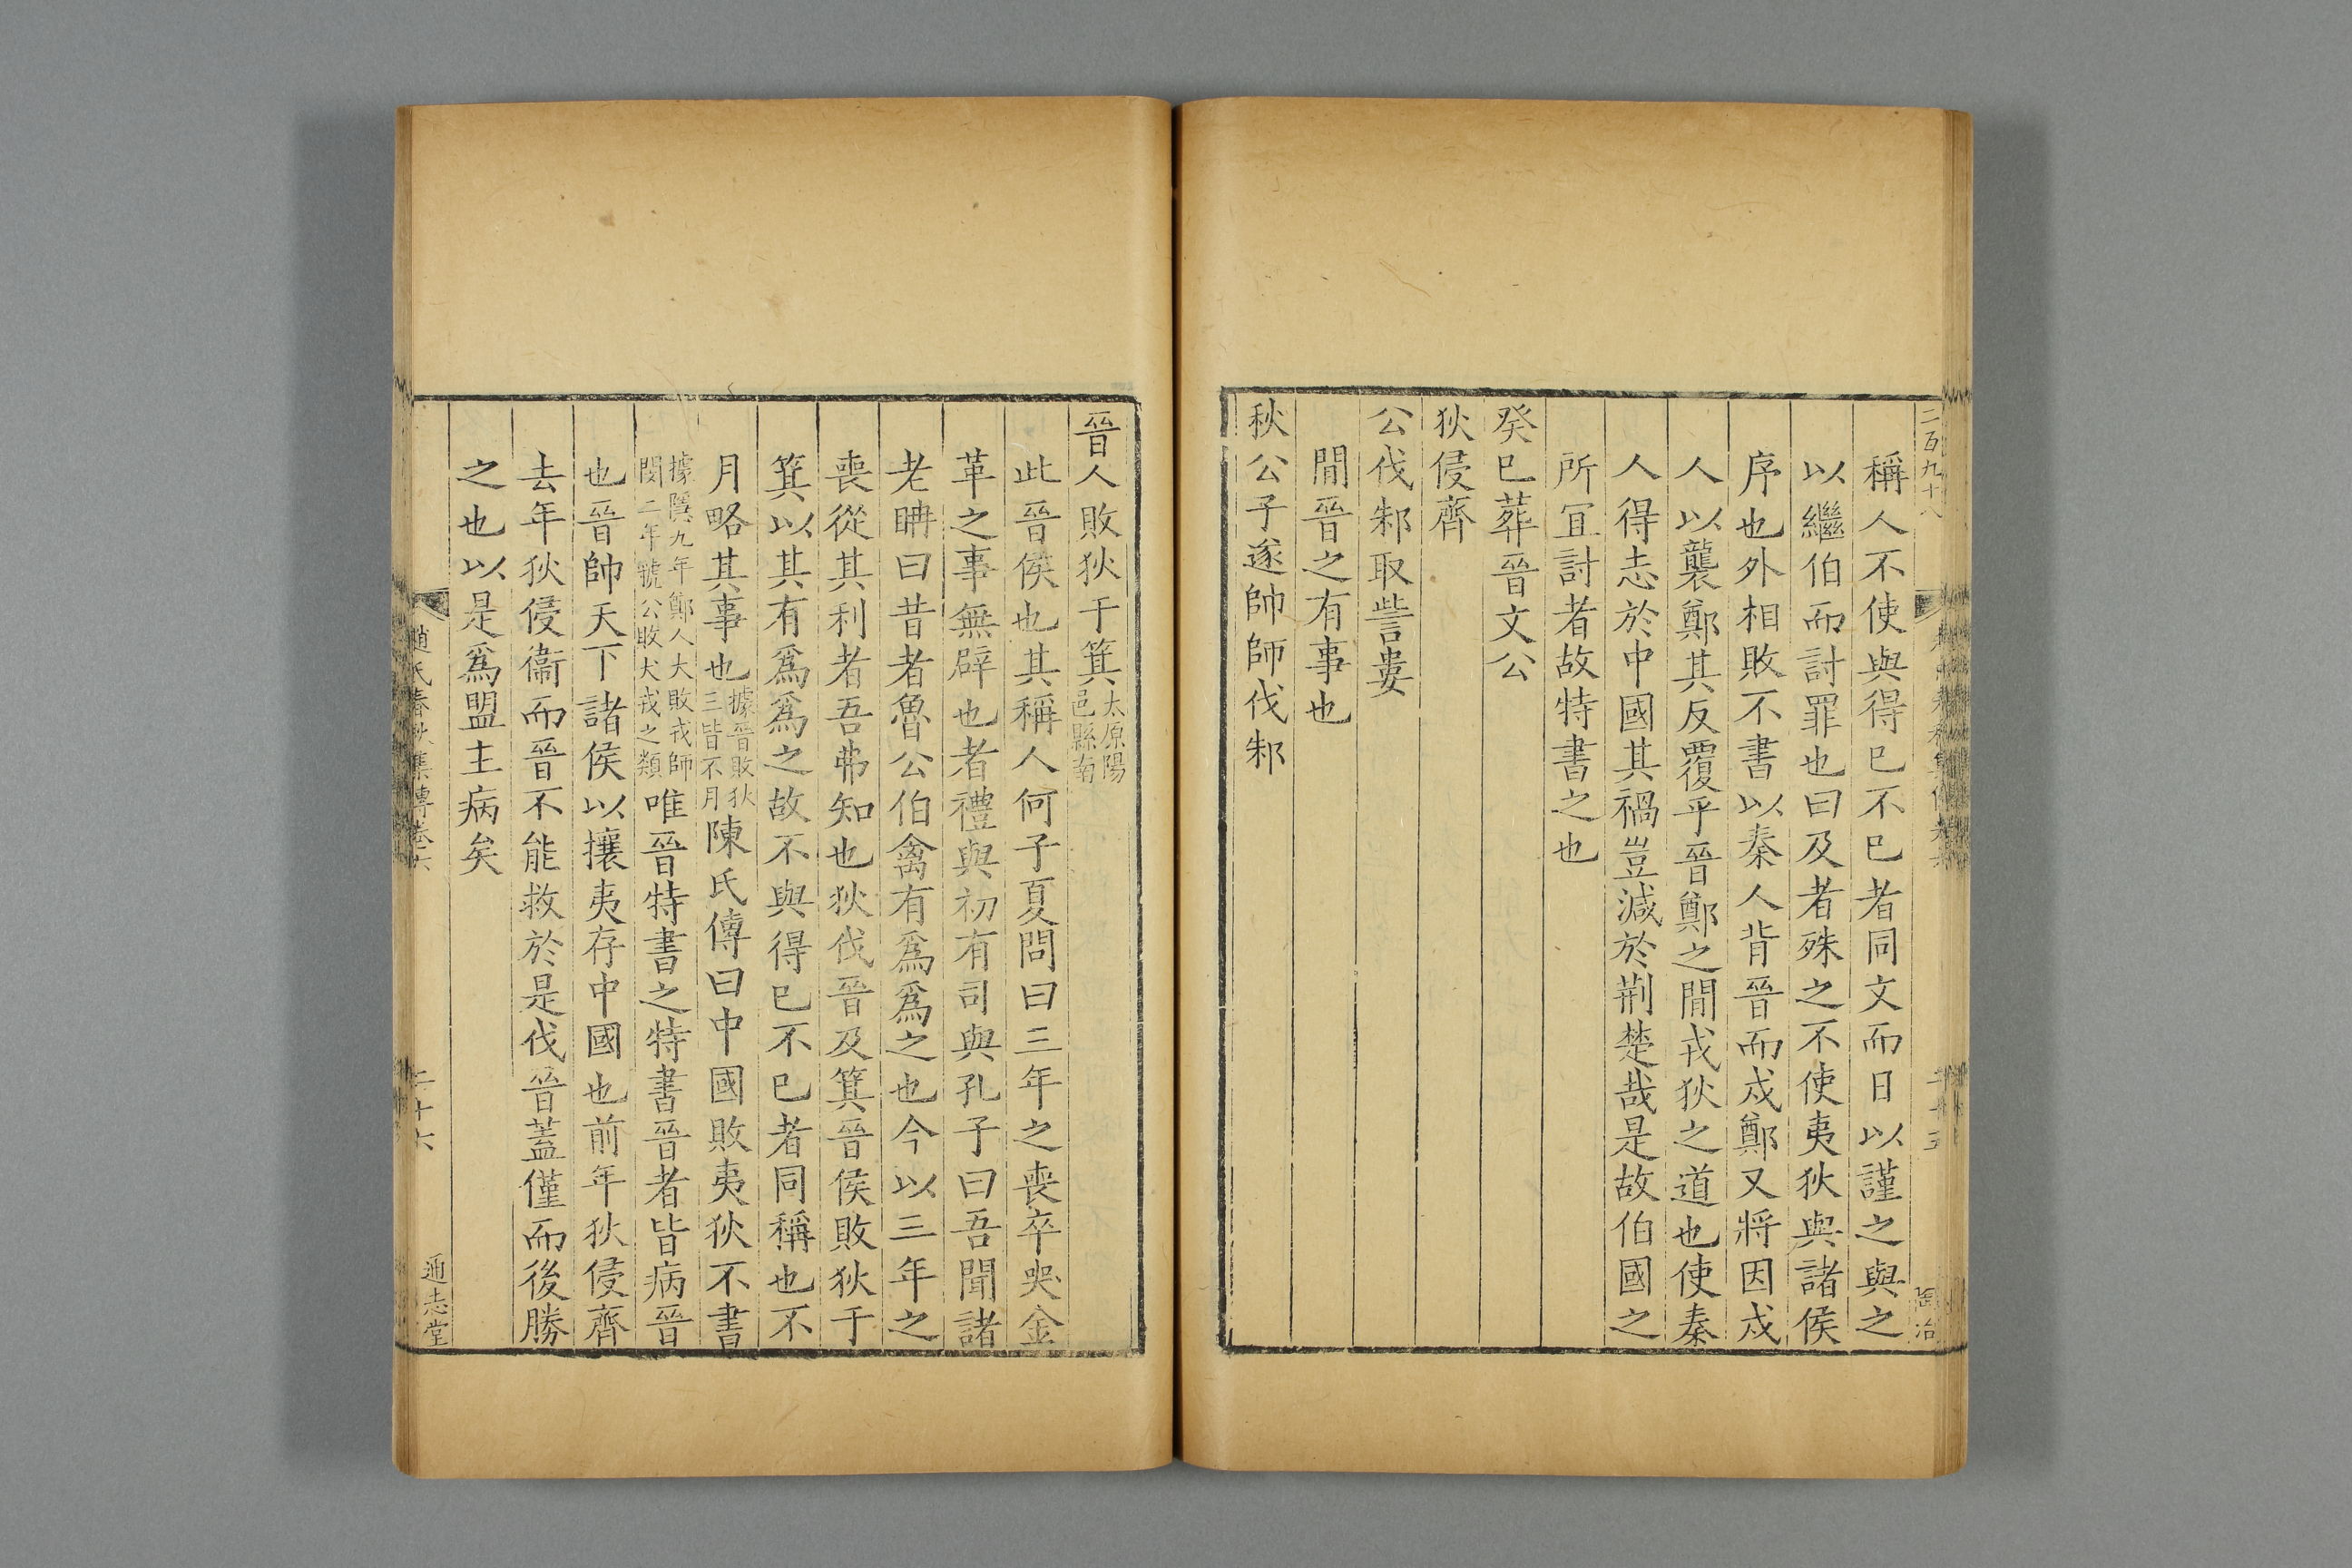 二百九十八
稱人不使與得已不已者同文而日以謹之與之
以繼伯而討罪也曰及者殊之不使夷狄與諸侯
序也外相敗不書以秦人背晉而戍鄭又將因戍
人以襲鄭其反覆乎晉鄭之閒戎狄之道也使秦
人得志於中國其禍豈減於荆楚哉是故伯國之
所宜討者故特書之也
癸巳葬晉文公
狄侵齊
公伐邾取訾婁
閒晉之有事也
秋公子遂帥師伐邾
晉人敗狄于箕太原陽邑縣南
此晉侯也其稱人何子夏問曰三年之喪卒哭金
革之事無辟也者禮與初有司與孔子曰吾聞諸
老聃曰昔者魯公伯禽有爲爲之也今以三年之
喪從其利者吾弗知也狄伐晉及箕晉侯敗狄于
箕以其有爲爲之故不與得已不已者同稱也不
月略其事也據晉敗狄三皆不月陳氏傳曰中國敗夷狄不書
據隱九年鄭人大敗戎師閔二年虢公敗犬戎之類唯晉特書之特書晉者皆病晉
也晉帥天下諸侯以攘夷存中國也前年狄侵齊
去年狄侵衞而晉不能救於是伐晉蓋僅而後勝
之也以是爲盟主病矣
趙氏春秋集傳卷六
二十六
通志堂